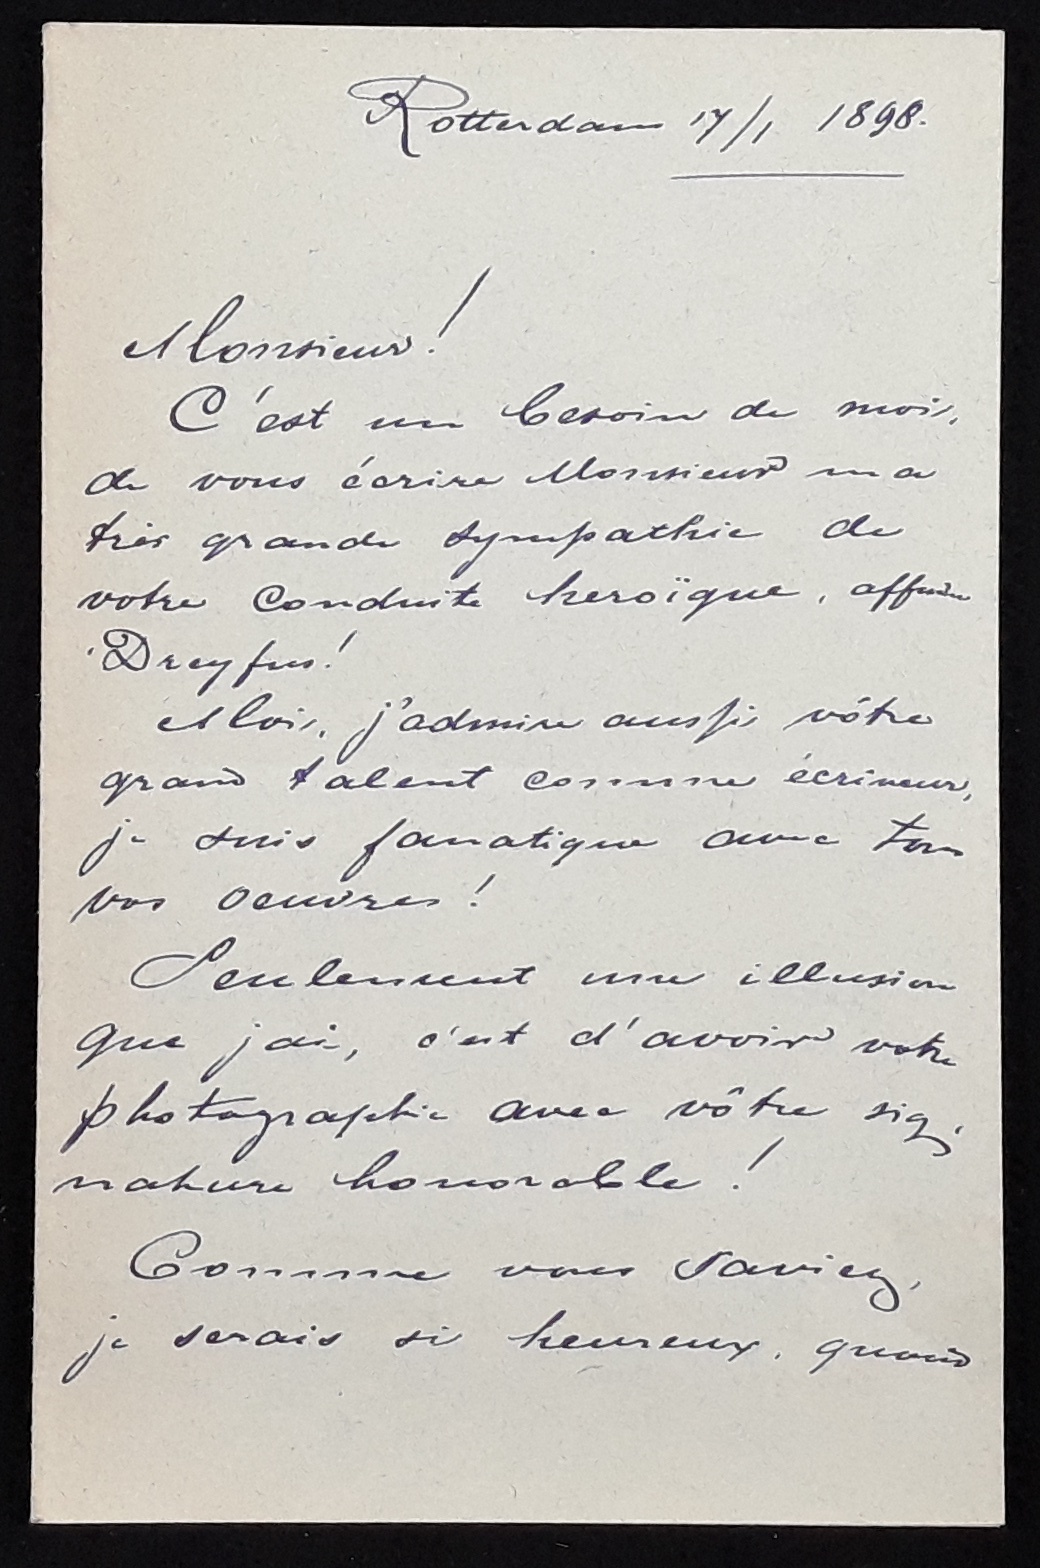 Rotterdam 17/1 1898.
Monsieur!
C'est un besoin de moi,
de vous écrire Monsieur ma
très grande sympathie de
votre conduite heroïque, affaire
Dreyfus!
Moi, j'admire aussi vôtre
grand talent comme écriveur,
je suis fanatique avec tous
vos oeuvres!
Seulement une illusion
que jai, c'est d'avoir votre
photographie avec vôtre sig,
nature honorable!
Comme vous saviez,
je serais si heureux, quand